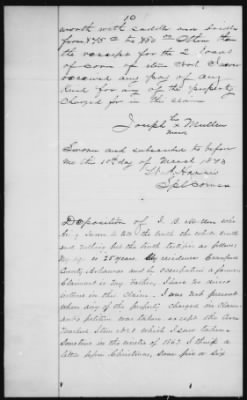 10
worth with saddle and bridle
from $75 to the $80 00 Other than
the receipt for the 2 loads
of corn of item No 1 I never
received any pay of any
kind for any of the property
charged for in the claim
Joseph his x Mullen
mark
Sworn and subscribed to before
me this 10th day of March 1873
Spl Comr
Deposition of J. B. Mullen who
being sworn to tell the truth the whole truth
and nothing but the truth testifies as follows
My age is 25 years. My residence Crawford
County Arkansas and by occupation a farmer
Claimant is my Father, I have no direct
interest in this Claim. I was not present
when any of the property charged in Claim-
ants petition was taken except the corn
Item No 1 which I saw taken
Sometime in the winter of 1863 I think a
little before Christmas, some five or six